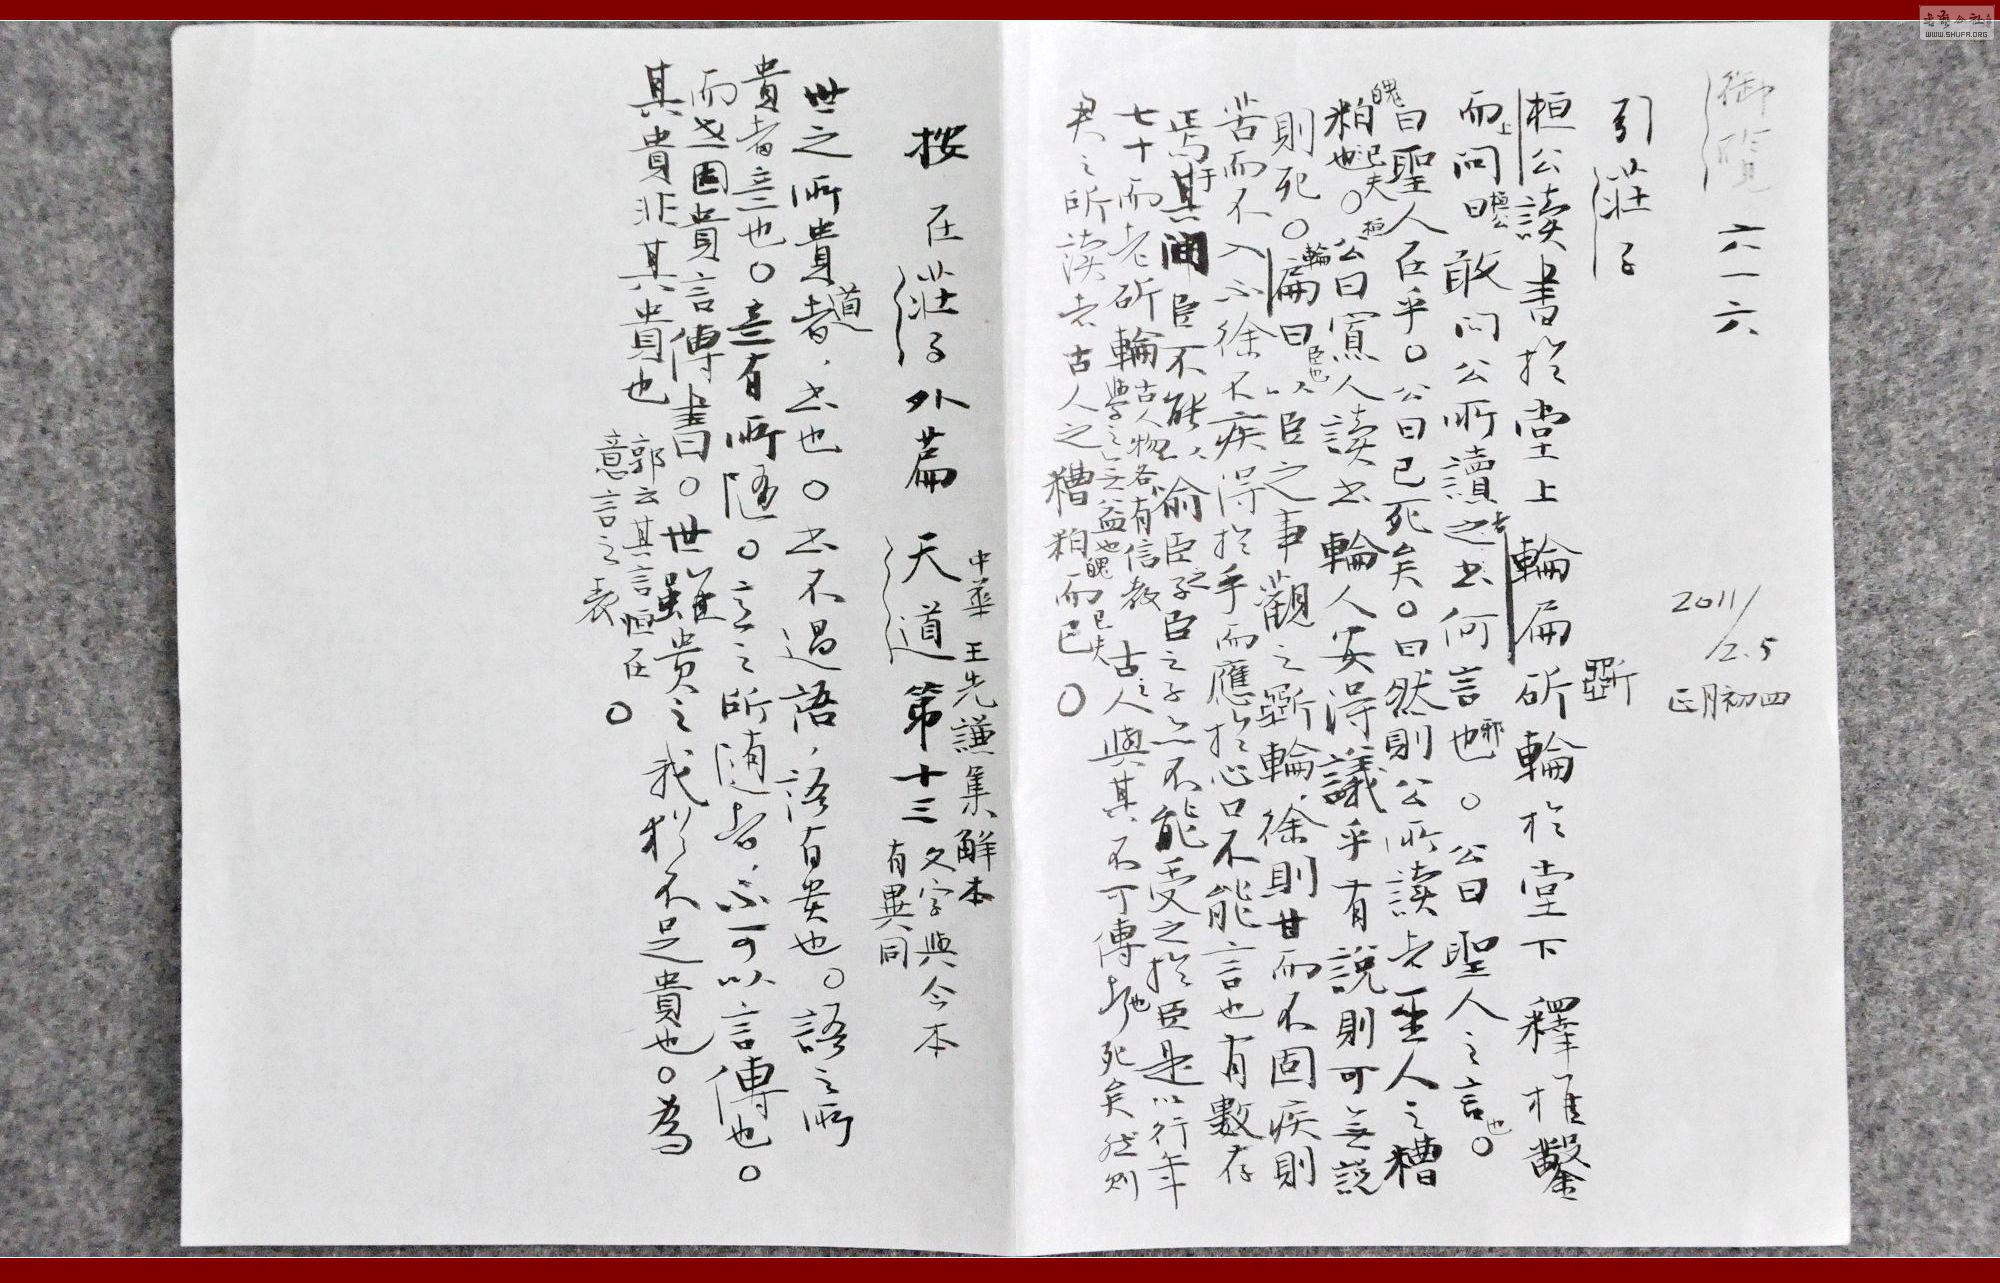 御覽 六一六
2011/2.5
正月初四
引莊子
桓公讀書於堂上輪扁斫輪於堂下釋椎鑿
斲
而上問曰桓公敢問公所讀之者书何言也邪。公曰聖人之言也。
曰聖人在乎。公曰已死矣。曰然則公所读者圣人之糟
粕魄也已夫。桓公曰寡人讀书輪人安得議乎有説則可無説
則死。輪扁曰臣也以臣之事觀之斲輪,徐則甘而不固疾則
苦而不入不徐不疾得於手而應於心口不能言也有數存
焉于其間臣不能以俞臣之子臣之子亦不能受之於臣是以行年
七十而老斫輪古人物各有信教學之無益也古之人與其不可傳也死矣然则
君之所读者古人之糟粕魄而已已夫。
按在莊子外篇天道第十三
中華王先謙集解本
文字與今本
有異同
世之所貴道者,书也。书不過語,语有贵也。語之所
貴者意也。意有所随。意之所随者,不可以言傳也。
而世因貴言傳書。世雖贵之我猶不足貴也。為
其貴非其貴也
郭云其言恒在
意言之表。
书法公社
WWW.SHUFA.ORG